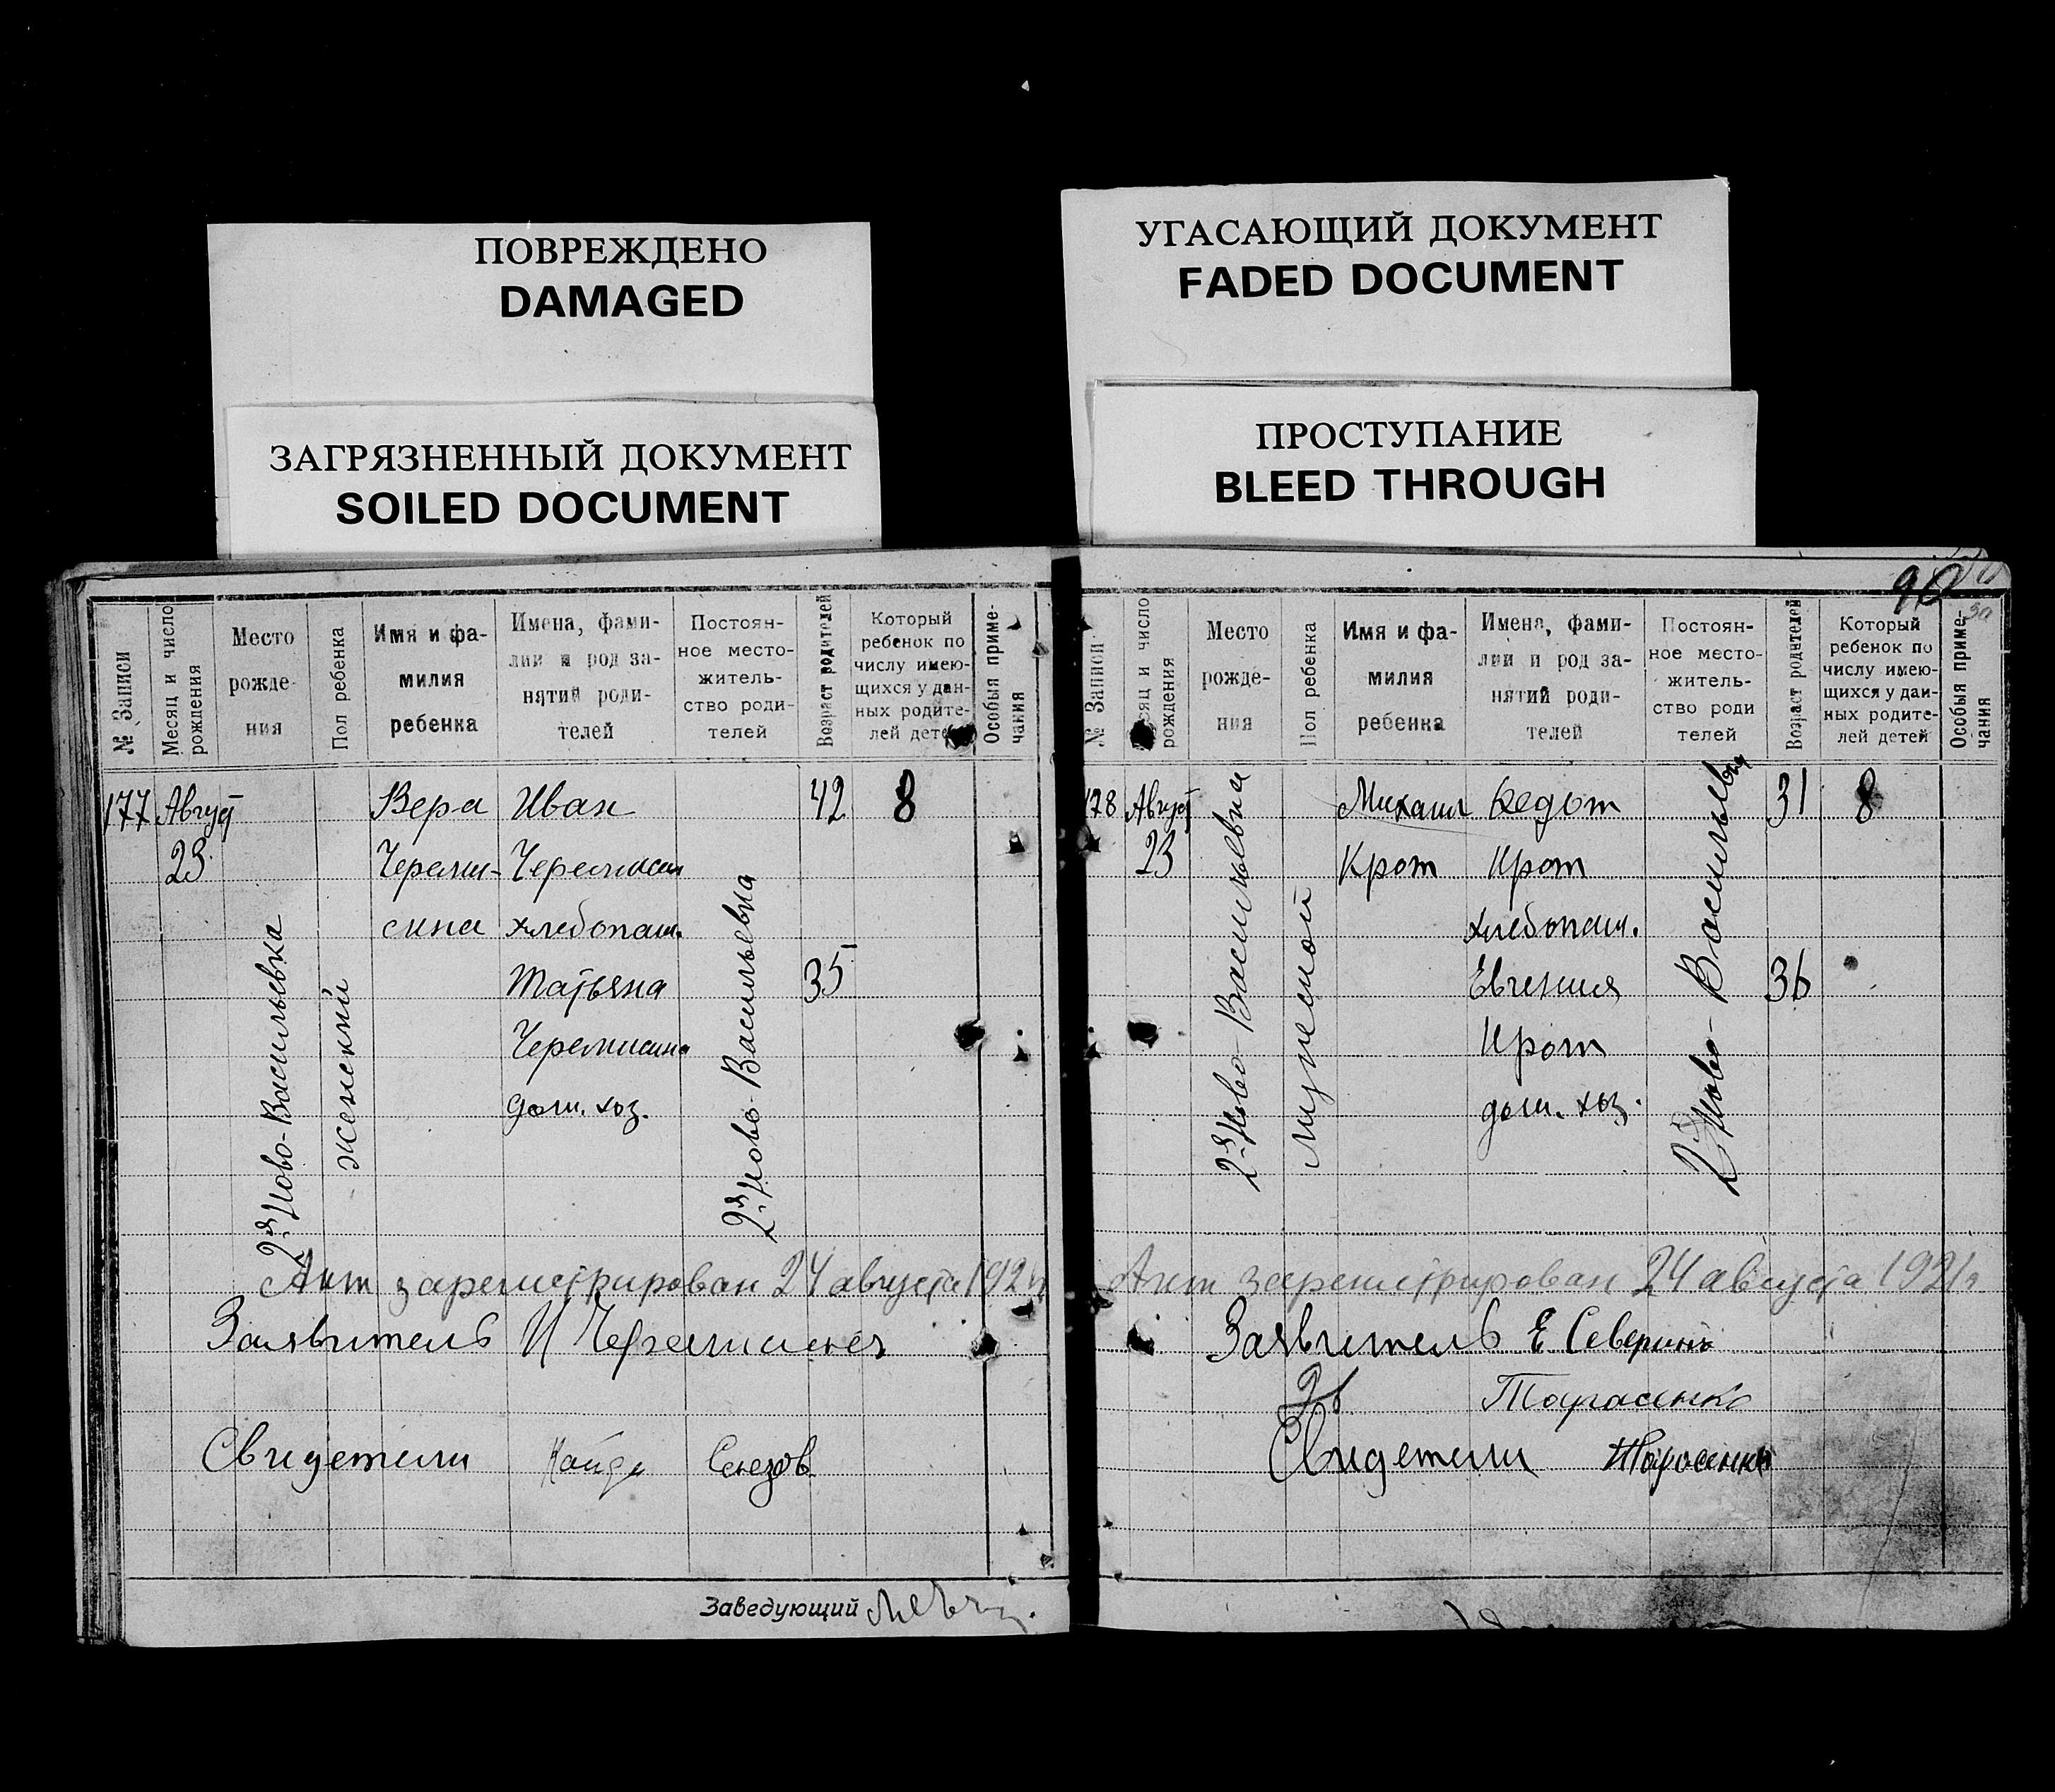 ПОВРЕЖДЕНО
DAMAGED
ЗАГРЯЗНЕННЫЙ ДОКУМЕНТ
SOILED DOCUMENT
УГАСАЮЩИЙ ДОКУМЕНТ
FADED DOCUMENT
ПРОСТУПАНИЕ
BLEED THROUGH
№ Записи
Месяц и число
рождения
Место
рожде-
ния
Пол ребенка
Имя и фа-
милия
ребенка
Имена, фами-
лии и род за-
нятий роди-
телей
Постоян-
ное место-
житель-
ство роди-
телей
Возраст родителей
Который
ребенок по
числу имею-
щихся у дан-
ных родите-
лей дете
Особыя приме-
чания
177
Август
23
2я Ново-Васильевка
женский
Вера
Череми-
сина
Иван
Черемисин
хлебопаш.
Татьяна
Черемисина
дом. хоз.
2я Ново-Васильевка
42
35
8
Акт зарегистрирован 24 августа 192
Заявитель И Черемисинъ
Свидетели Кайда
Заведующий
90
№ Записи
сяц и число
рождения
Место
рожде-
ния
Пол ребенка
Имя и фа-
милия
ребенка
Имена, фами-
лии и род за-
нятий роди-
телей
Постоян-
ное место-
житель-
ство роди
телей
Возраст родителей
Который
ребенок по
числу имею-
щихся у дан-
ных родите-
лей детей
Особыя приме-
чания
178
Август
23
2я Ново-Васильевка
Мужеской
Михаил
Крот
Федот
Крот
хлебопаш.
Евгения
Крот
дом. хоз.
2я Ново-Васильевка
31
36
8
Акт зарегистрирован 24 августа 1921г
Заявитель Е Северинъ
Тарасенко
Свидетели Тарасенко